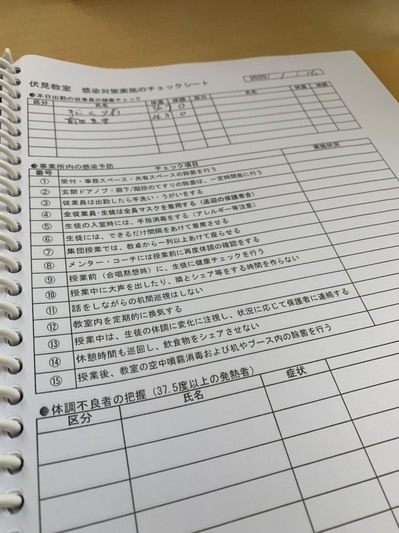 伏見教室 感染対策実施のチェックシート
2020/
●本日出勤の従業員の健康チェック
区分 氏名 体温 体調 区分 氏名 体温 体調
36.3 0
●事業所内の感染予防
番号 チェック項目 実施状況
① 受付・事務スペース・共有スペースの除菌を行う
② 玄関ドアノブ・廊下/階段のてすりの除菌は、一定時間毎に行う
③ 従業員は出勤したら手洗い・うがいをする
④ 全従業員・生徒は全員マスクを着用する(送迎の保護者含)
⑤ 生徒の入室時には、手指消毒をする(アレルギー等注意)
⑥ 生徒には、できるだけ間隔をあけて着席させる
⑦ 集団授業では、教卓から一列以上あけて座らせる
⑧ メンター・コーチには授業前に再度体調の確認をする
⑨ 授業前(合唱黙想時)に、生徒に健康チェックを行う
⑩ 授業中に大声を出したり、隣とシェア等をする時間を作らない
⑪ 話をしながらの机間巡視はしない
⑫ 教室内を定期的に換気する
⑬ 授業中は、生徒の体調に変化に注視し、状況に応じて保護者に連絡する
⑭ 休憩時間も巡回し、飲食物をシェアさせない
⑮ 授業後、教室の空中噴霧消毒および机やブース内の除菌を行う
●体調不良者の把握(37.5度以上の発熱者)
区分 氏名 症状